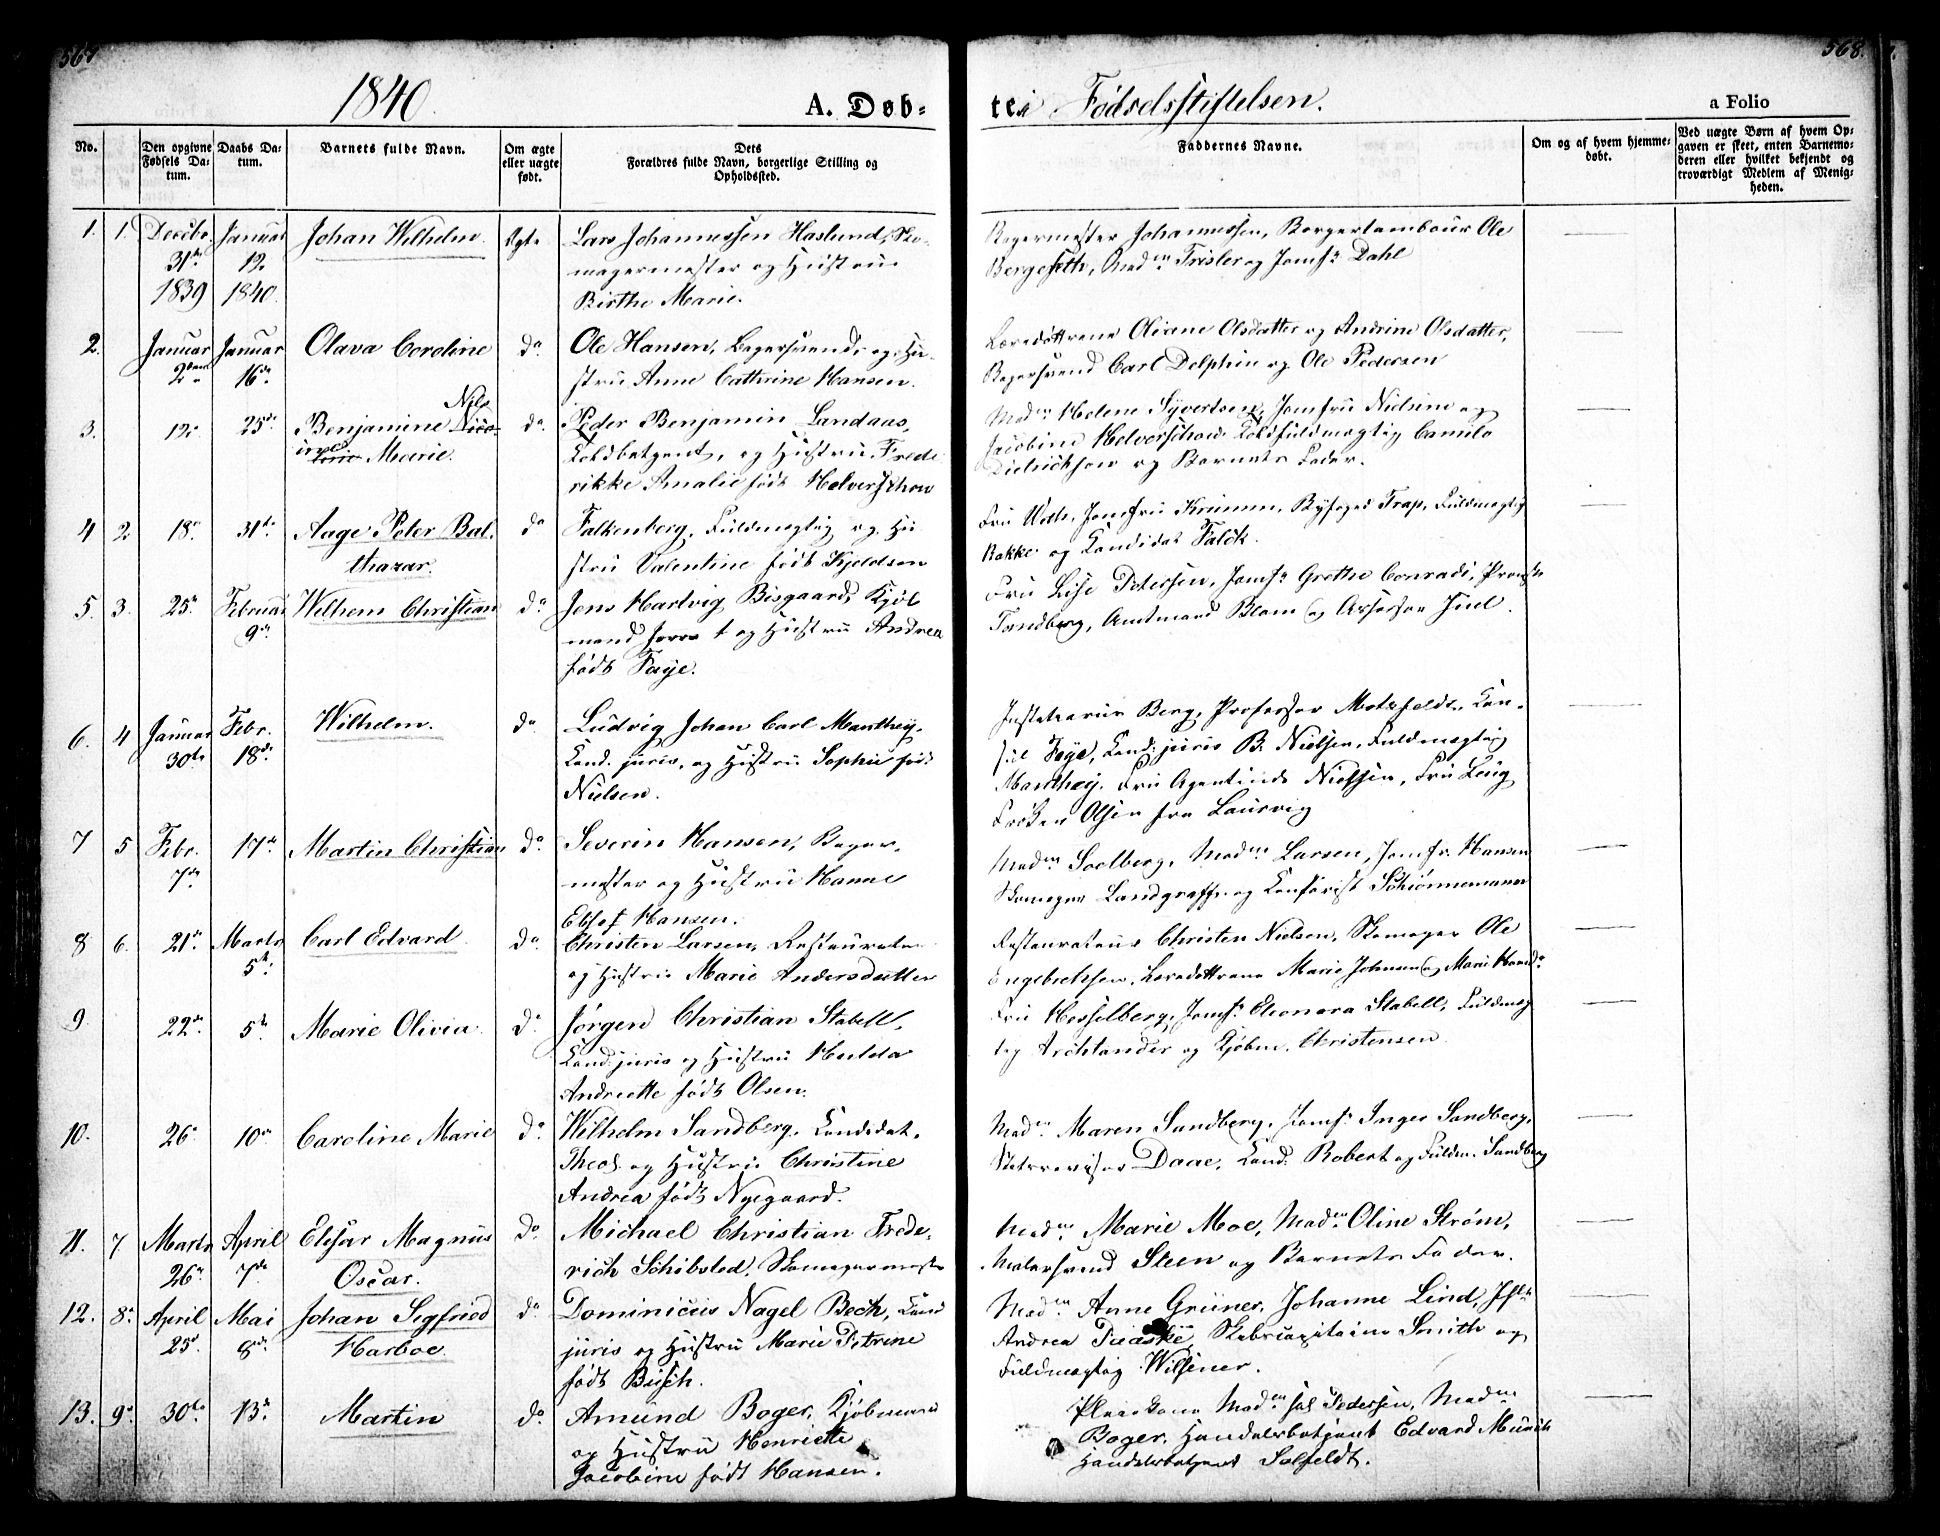 567
568.
1840.
A. Døb-
te i Fødselsstiftelsen.
a Folio
No.
Den opgivne Fødsels Datum.
Daabs Datum.
Barnets fulde Navn.
Om ægte eller uægte født.
Dets Forældres fulde Navn, borgerlige Stilling og Opholdssted.
Faddernes Navne.
Om og af hvem hjemmedøbt.
Ved uægte Børn af hvem Opgaven er skeet, enten Barnemoderen eller hvilket bekjendt og troværdigt Medlem af Menigheden.
1. 1. Decebr. Januar Johan Wilhelm. Ægte Lars Johannessen Haslund, Sko-
31te 12. magermester og Hustrue
1839 1840. Birthe Marie.
Bagermester Johannessen, Borgertambour Ole
Bergeseth, Madm Frisler og Jomfr Dahl
2. Januar Januar Olava Caroline do. Ole Hansen, Bagersvend, og Hu-
2den 16de stru Anne Cathrine Hansen.
Løvedøttrene Oliane Olsdatter og Andrine Olsdatter,
Bagersvend Carl Delphin og Ole Pedersen
Nils
3. 12. 25de Benjamine Nico- do. Peder Benjamin Landaas,
ine Marie. Toldbetjent, og Hustru Frede
rikke Amalie født Helverschou
Madm Helene Syvertsen, Jomfru Nielsine og
Jacobine Helverschou Toldfuldmægtig Camilo
Didrickson og Barnets Fader.
4 2 18. 31te Aage Peter Bal- do Falkenberg, Fuldmægtig og Hu
thazar. stru Valentine født Kjeldsen
Fru Uoth, Jomfru Krumm, Byfoged Trap, Fuldmægtig
Bakke og Candidat Falck.
5. 3. 25. Februar Wilhem Christian do Jens Hartvig Bisgaard, Kjøb
9de mand og Hustru Andrea
født Faye.
Fru Lise Petersen, Jomfr Grethe Conradi, Provst
Tandberg, Amtmand Blom og Assessor Juel.
6. 4 Januar Febr. Wilhelm. do Ludvig Johan Carl Manthey,
30te 18de Cand. juris, og Hustru Sophie født
Nielsen.
Justitiarius Berg, Professor Motzfeldt, Con-
sul Faye, Cand. juris B. Nielsen, Fuldmægtig
Manthey, Fru Agentinde Nielsen, Fru Leug
Frøken Olsen fra Laurvig
7 5 Febr. 17de Martin Christian do Severin Hansen, Bager-
7de mester og Hustru Hanne
født Hansen.
Madm Soelberg, Madm Larsen, Jomfr. Hansen
Skomager Landgraff og Contorist Schiønnemann
8 6. 21de Marts Carl Edvard do Christen Larsen, Restauratør
5te og Hustru Marie Andersdatter
Restaurateur Christen Nielsen, Skomager Ole
Engebretsen, Løvedøttrene Marie Johnsen og Marie Hansdr
9 22de 5te Marie Olivia. do Jørgen Christian Stabell,
Cand. juris og Hustru Hulda
Andriette født Olsen.
Fru Hesselberg, Jomfr Eleonora Stabell, Fuldmæg
tig Archtander og Kjøbm. Christensen
10. 26. 10de Caroline Marie do. Wilhelm Sandberg, Candidat.
Theol. og Hustru Christine
Andrea født Nyegaard.
Madm Maren Sandberg, Jomfr Inger Sandberg,
Statsrevisor Daae, Cand. Robert og Fuldm. Sandberg
11. 7. Marts April Elisar Magnus do. Michael Christian Frede-
26. 7de Oscar. rich Schibsted, Skomagermester
Madm Marie Moe, Madm Oline Strøm,
Malersvend Steen og Barnets Fader.
12. 8. April Mai Johan Sigfried do Dominicus Nagel Bech, Cand
25. 8de Harboe. juris og Hustru Marie Petrine
født Busch.
Madm Anne Gruner, Johanne Lind, Jfr
Andrea Skibscapitaine Smith og
Fuldmægtig Wilsener.
13. 9. 30te 13de Martin do. Amund Boger, Kjøbmand
og Hustru Henriette
Jacobine født Hansen.
Pleiekone Madm Pedersen, Madm
Boger, Handelsbetjent Edvard Munch
Handelsbetjent Salfeldt.